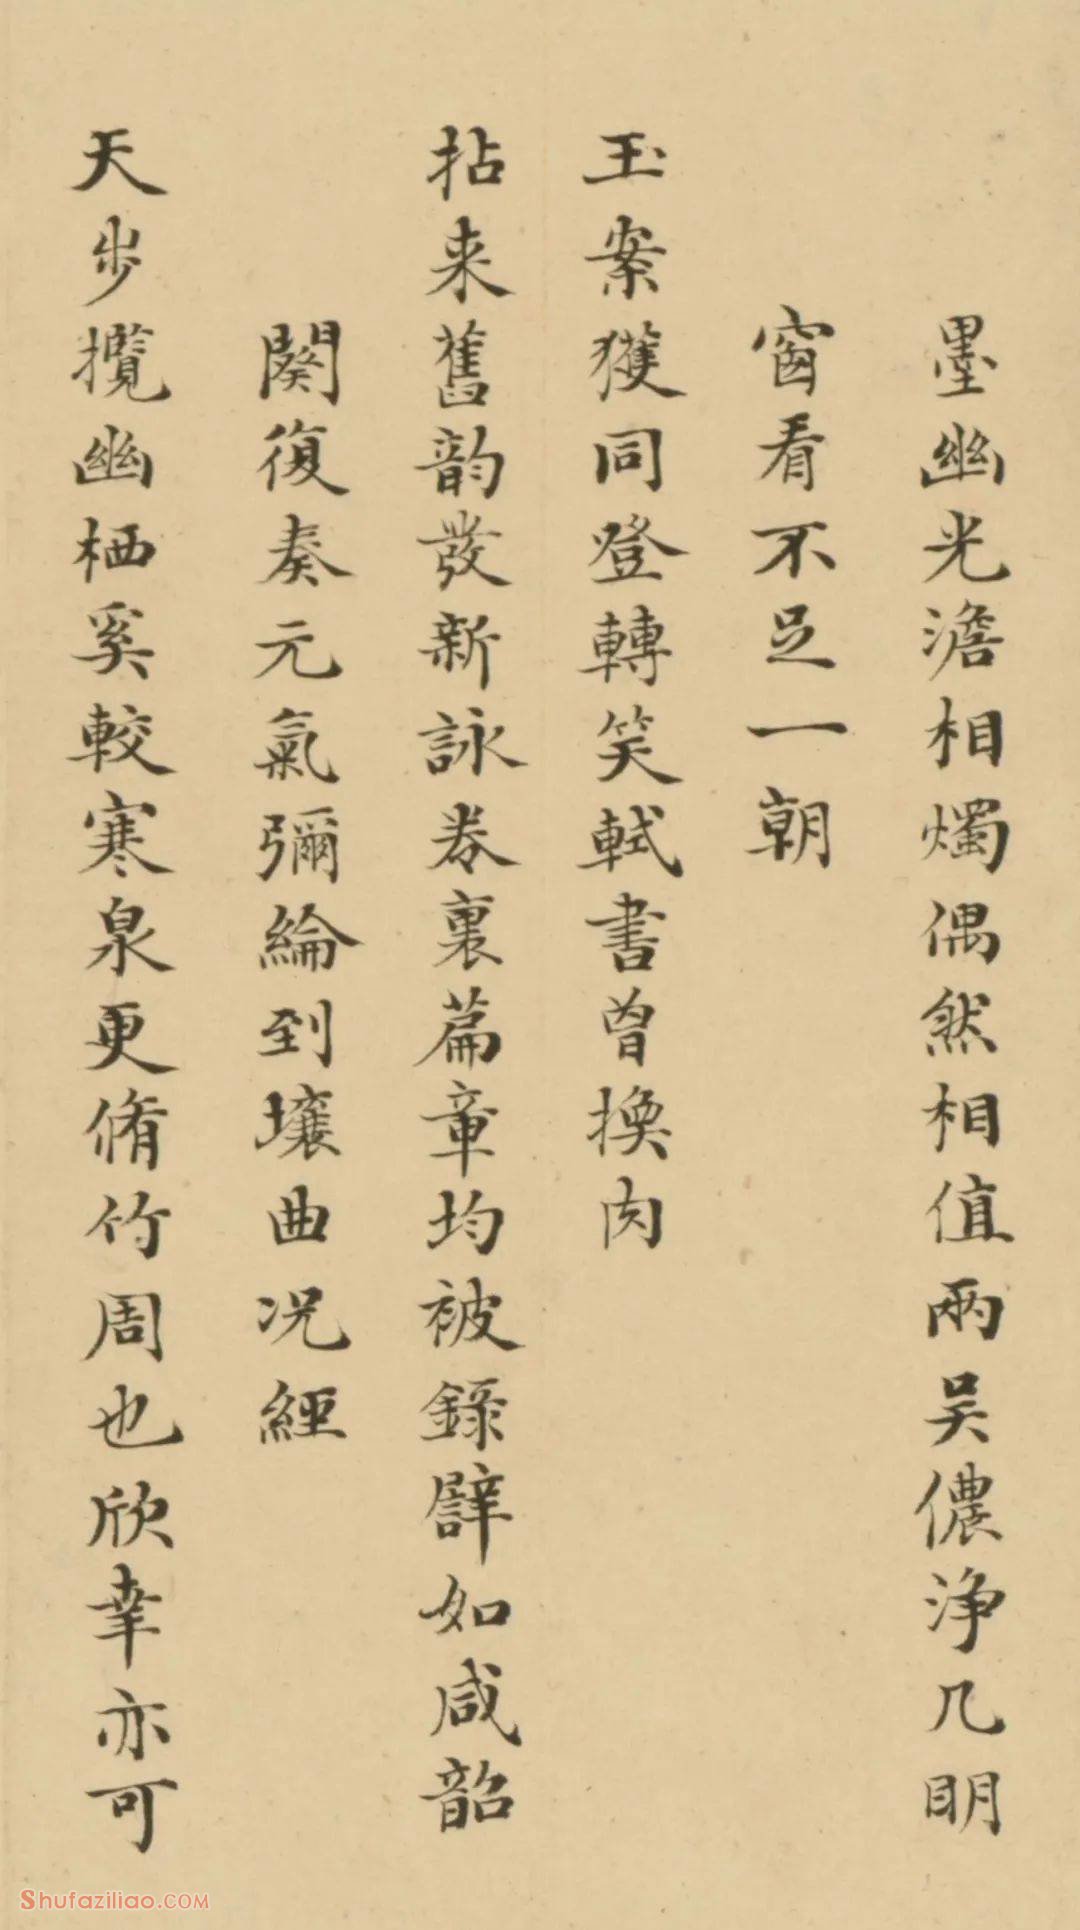 墨幽光澹相燭偶然相值兩吴儂浄几明
窗看不足一朝
玉案獲同登轉笑軾書曾換肉
拈来舊韵發新詠卷裏篇章均被錄譬如咸韶
闋復奏元氣彌綸到壤曲况經
天步攬幽栖奚較寒泉更脩竹周也欣幸亦可
Shufaziliao.COM